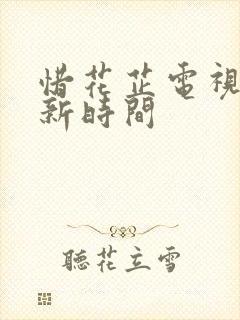 惜花芷電視
新時間
聽花立雪